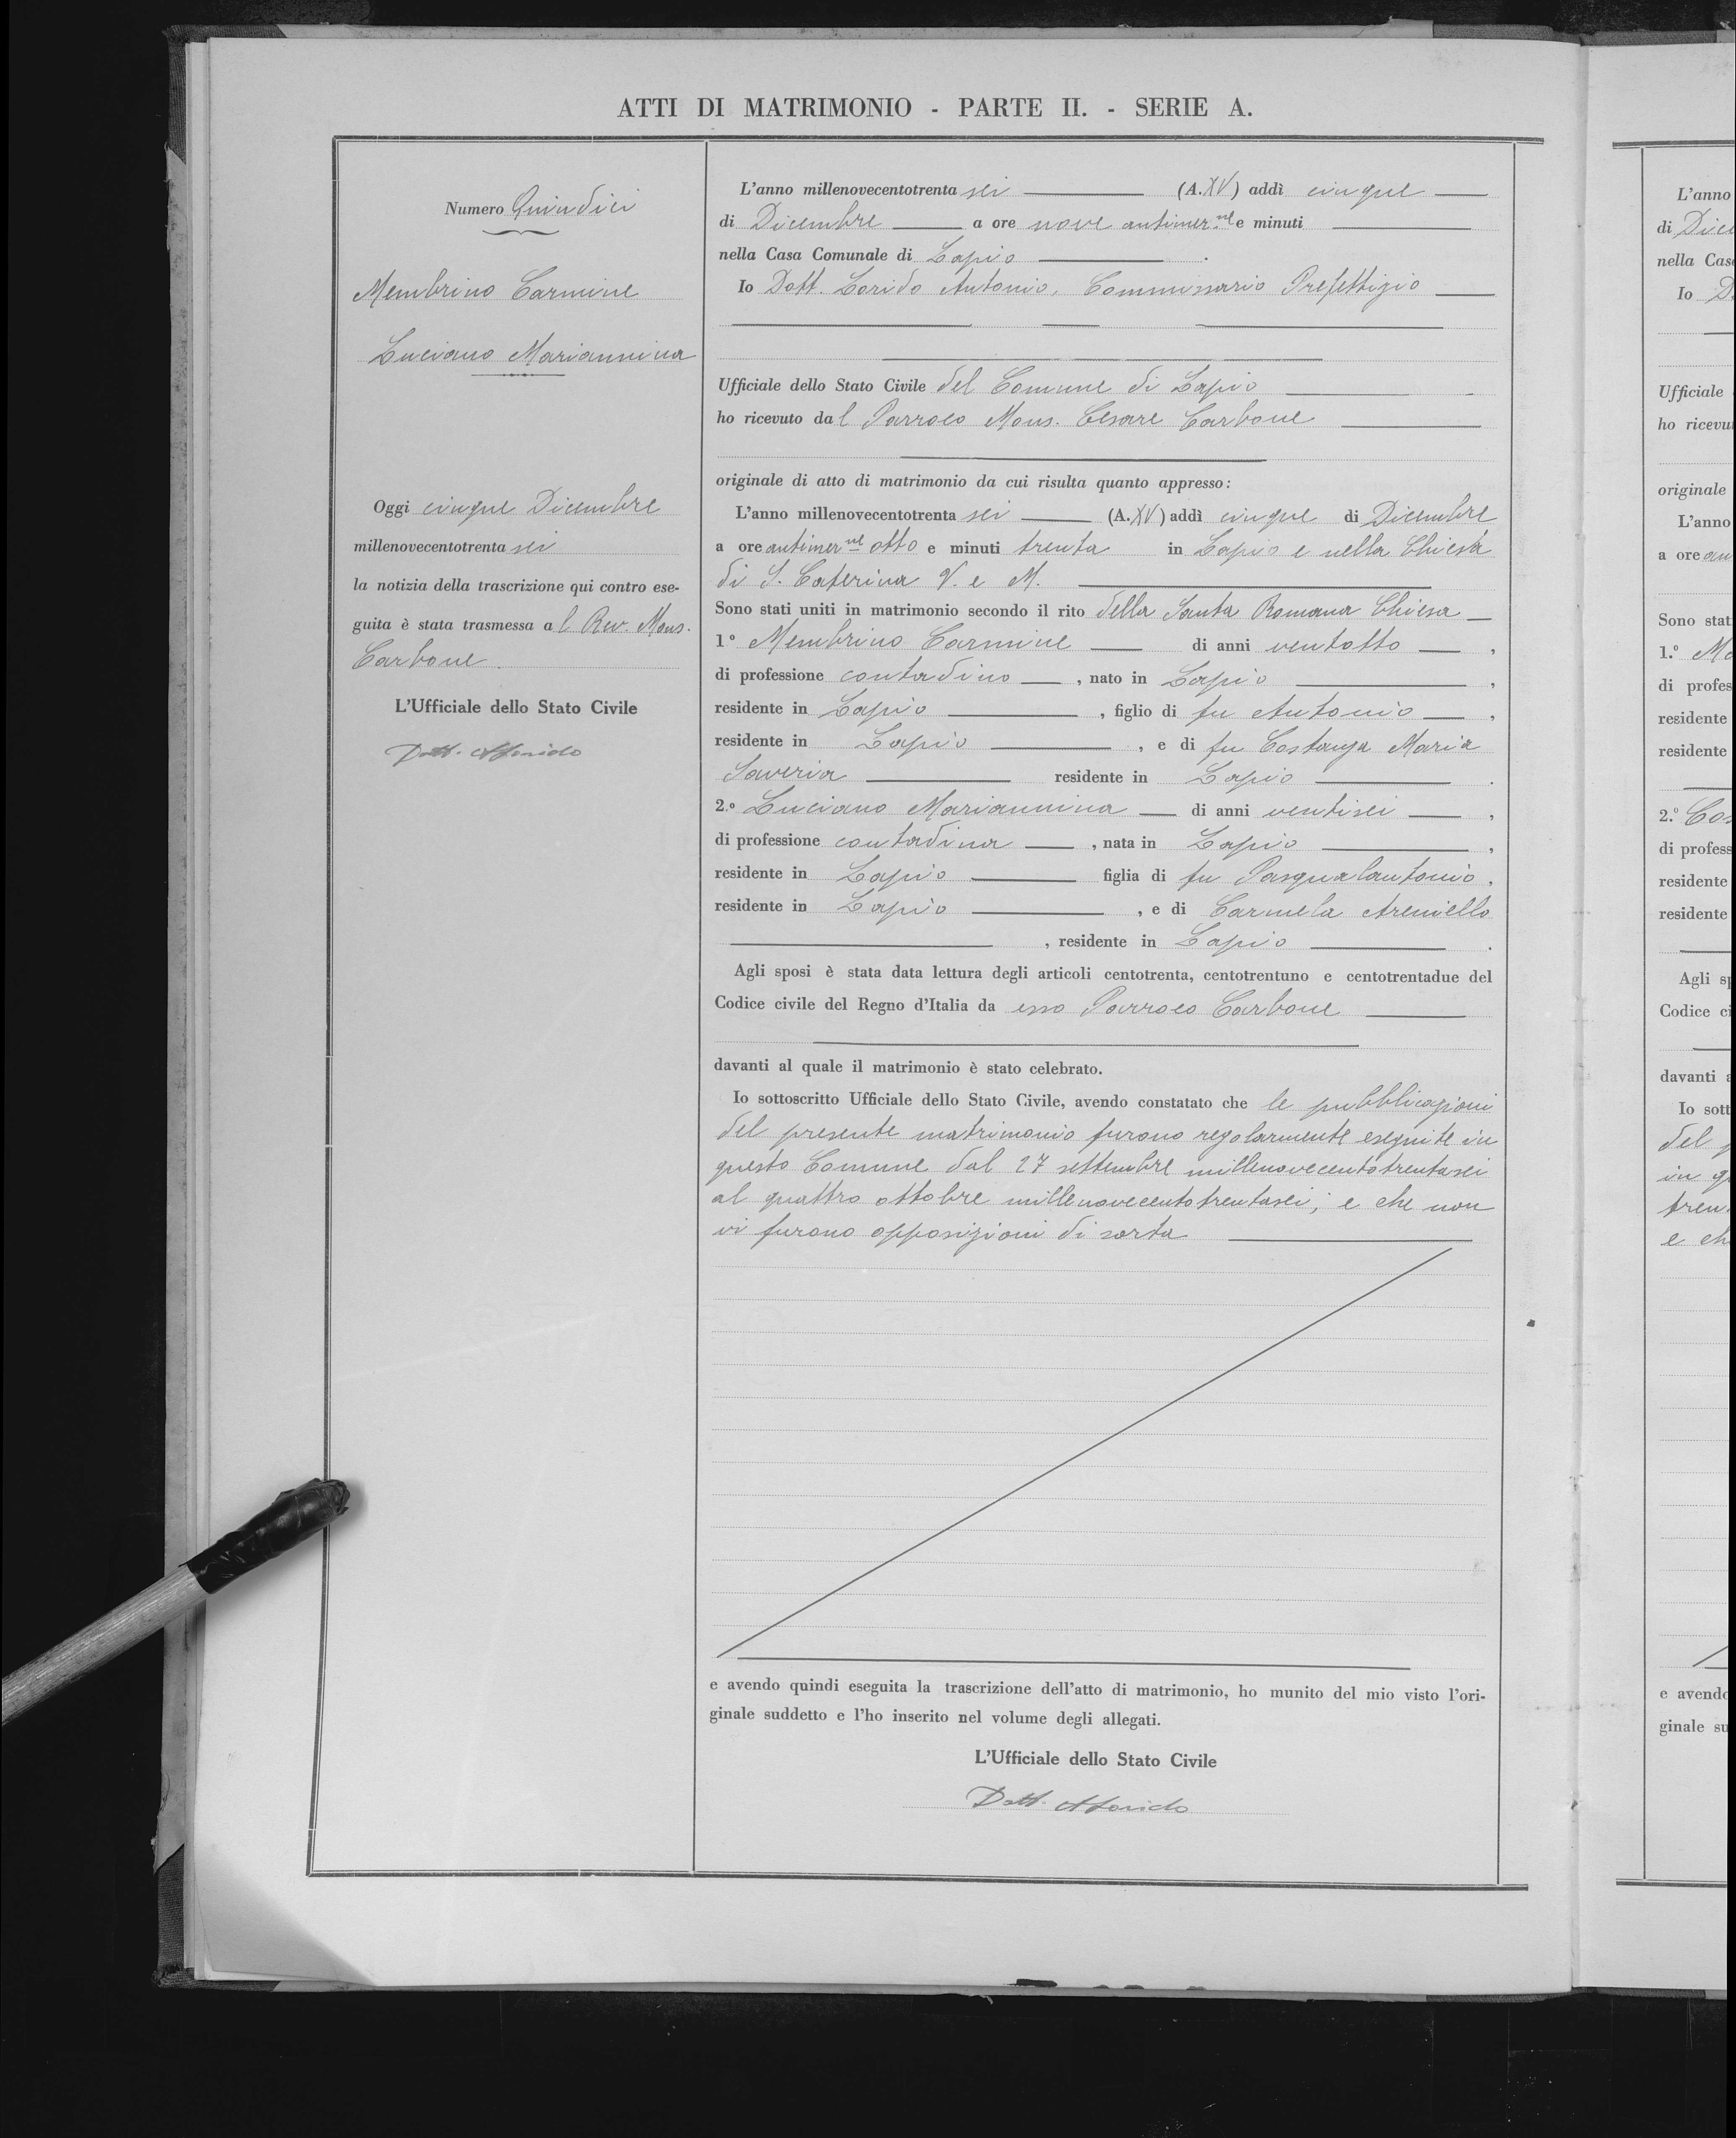 ATTI DI MATRIMONIO - PARTE II. - SERIE A.
Numero Quindici
Membrino Carmine
Luciano Mariannina
Oggi cinque Dicembre
millenovecentotrenta sei
la notizia della trascrizione qui contro ese-
guita è stata trasmessa al Rev. Mons.
Carbone.
L'Ufficiale dello Stato Civile
Dott.
L'anno millenovecentotrenta sei (A. XV) addì cinque
di Dicembre a ore nove antimer.ne e minuti
nella Casa Comunale di Lapio .
Io Dott. Lorido Antonio, Commissario Prefettizio
Ufficiale dello Stato Civile del Comune di Lapio
ho ricevuto dal Parroco Mons. Cesare Carbone
originale di atto di matrimonio da cui risulta quanto appresso:
L'anno millenovecentotrenta sei (A. XV) addì cinque di Dicembre
a ore antimer.ne otto e minuti trenta in Lapio e nella Chiesa
di S. Caterina V. e M.
Sono stati uniti in matrimonio secondo il rito della Santa Romana Chiesa
1° Membrino Carmine di anni ventotto ,
di professione contadino , nato in Lapio ,
residente in Lapio , figlio di fu Antonio ,
residente in Lapio , e di fu Costanza Maria
Saveria residente in Lapio .
2.° Luciano Mariannina di anni ventisei ,
di professione contadina , nata in Lapio ,
residente in Lapio figlia di fu Pasqualantonio,
residente in Lapio , e di Carmela Areniello
, residente in Lapio .
Agli sposi è stata data lettura degli articoli centotrenta, centotrentuno e centotrentadue del
Codice civile del Regno d'Italia da esso Parroco Carbone
davanti al quale il matrimonio è stato celebrato.
Io sottoscritto Ufficiale dello Stato Civile, avendo constatato che le pubblicazioni
del presente matrimonio furono regolarmente eseguite in
questo Comune dal 27 settembre millenovecentotrentasei
al quattro ottobre millenovecentotrentasei; e che non
vi furono opposizioni di sorta
e avendo quindi eseguita la trascrizione dell'atto di matrimonio, ho munito del mio visto l'ori-
ginale suddetto e l'ho inserito nel volume degli allegati.
L'Ufficiale dello Stato Civile
Dott.
L'anno
di
nella
Io
Ufficiale
ho
originale
L'anno
a ore
Sono
1.°
di
residente
residente
2.°
di
residente
residente
Agli
Codice
davanti
Io
del
in
e
e
ginale